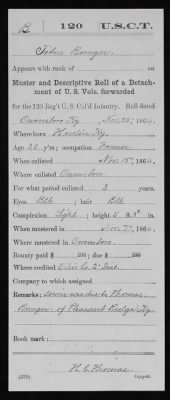 B. 120 U.S.C.T.
Bunger,
Appears with rank of on
Muster and Descriptive Roll of a Detach-
ment of U. S. Vols. forwarded
for the 120 Reg't U. S. Col'd Infantry. Roll dated
Owensboro Ky Nov. 1864.
Where born Hardin Ky.
Age 20 y'rs; occupation Farmer
When enlisted Nov. 1864.
Where enlisted Owensboro
For what period enlisted 3 years.
Eyes Blk ; hair Blk
Complexion Light ; height 5 ft. in.
When mustered in Nov. 1864.
Where mustered in Owensboro
Bounty paid $ 100 ; due $ 100
Where credited 2 Dist.
Company to which assigned
Remarks: was due to Thomas
Bunger, of Pleasant Ridge Ky
Book mark:
(339) Copyist.